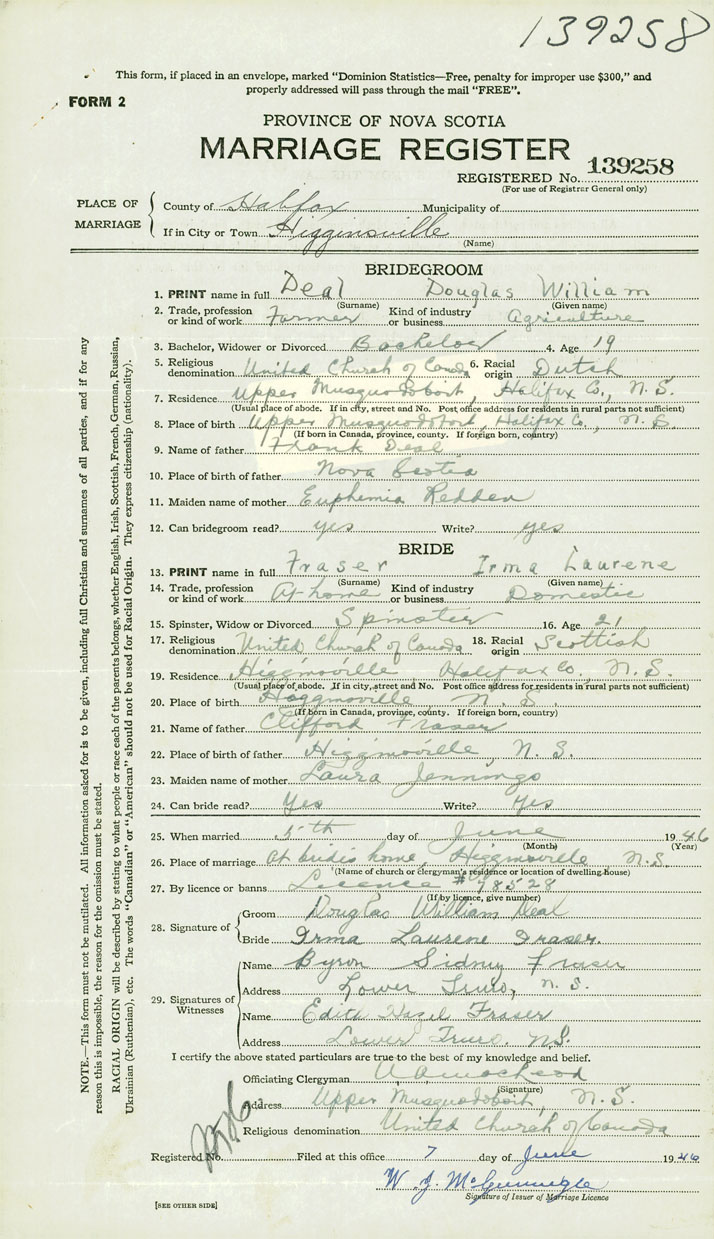 139258
This form, if placed in an envelope, marked "Dominion Statistics—Free, penalty for improper use $300," and
properly addressed will pass through the mail "FREE".
FORM 2
PROVINCE OF NOVA SCOTIA
MARRIAGE REGISTER
REGISTERED No. 139258
(For use of Registrar General only)
PLACE OF MARRIAGE
County of Halifax Municipality of
If in City or Town Higginsville
(Name)
BRIDEGROOM
1. PRINT name in full Deal Douglas William
(Surname) (Given name)
2. Trade, profession or kind of work Farmer Kind of industry or business Agriculture
3. Bachelor, Widower or Divorced Bachelor 4. Age 19
5. Religious denomination United Church of Canada 6. Racial origin Dutch
7. Residence Upper Musquodoboit, Halifax Co., N. S.
(Usual place of abode. If in city, street and No. Post office address for residents in rural parts not sufficient)
8. Place of birth Upper Musquodoboit, Halifax Co., N. S.
(If born in Canada, province, county. If foreign born, country)
9. Name of father Frank Deal
10. Place of birth of father Nova Scotia
11. Maiden name of mother Euphemia Redden
12. Can bridegroom read? yes Write? yes
BRIDE
13. PRINT name in full Fraser Irma Laurene
(Surname) (Given name)
14. Trade, profession or kind of work At home Kind of industry or business Domestic
15. Spinster, Widow or Divorced Spinster 16. Age 21
17. Religious denomination United Church of Canada 18. Racial origin Scottish
19. Residence Higginsville, Halifax Co., N. S.
(Usual place of abode. If in city, street and No. Post office address for residents in rural parts not sufficient)
20. Place of birth Higginsville N. S.
(If born in Canada, province, county. If foreign born, country)
21. Name of father Clifford Fraser
22. Place of birth of father Higginsville, N. S.
23. Maiden name of mother Laura Jennings
24. Can bride read? Yes Write? Yes
25. When married 5th day of June 1946
(Month) (Year)
26. Place of marriage At bride's home, Higginsville N. S.
(Name of church or clergyman's residence or location of dwelling-house)
27. By licence or banns Licence # 98528
(If by licence, give number)
28. Signature of
Groom Douglas William Deal
Bride Irma Laurene Fraser.
29. Signatures of Witnesses
Name Byron Sidney Fraser
Address Lower Truro, N. S.
Name Edith Hazel Fraser
Address Lower Truro, N.S.
I certify the above stated particulars are true to the best of my knowledge and belief.
Officiating Clergyman
(Signature)
Address Upper Musquodoboit, N. S.
Religious denomination United Church of Canada
Registered No. Filed at this office 7 day of June 1946
W. J.
Signature of Issuer of Marriage Licence
[SEE OTHER SIDE]
NOTE.—This form must not be mutilated. All information asked for is to be given, including full Christian and surnames of all parties, and if for any
reason this is impossible, the reason for the omission must be stated.
RACIAL ORIGIN will be described by stating to what people or race each of the parents belongs, whether English, Irish, Scottish, French, German, Russian,
Ukrainian (Ruthenian), etc. The words "Canadian" or "American" should not be used for Racial Origin. They express citizenship (nationality).